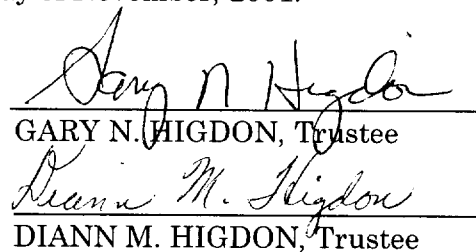 of November, 2001.
Gary N Higdon
GARY N. HIGDON, Trustee
Diann M. Higdon
DIANN M. HIGDON, Trustee